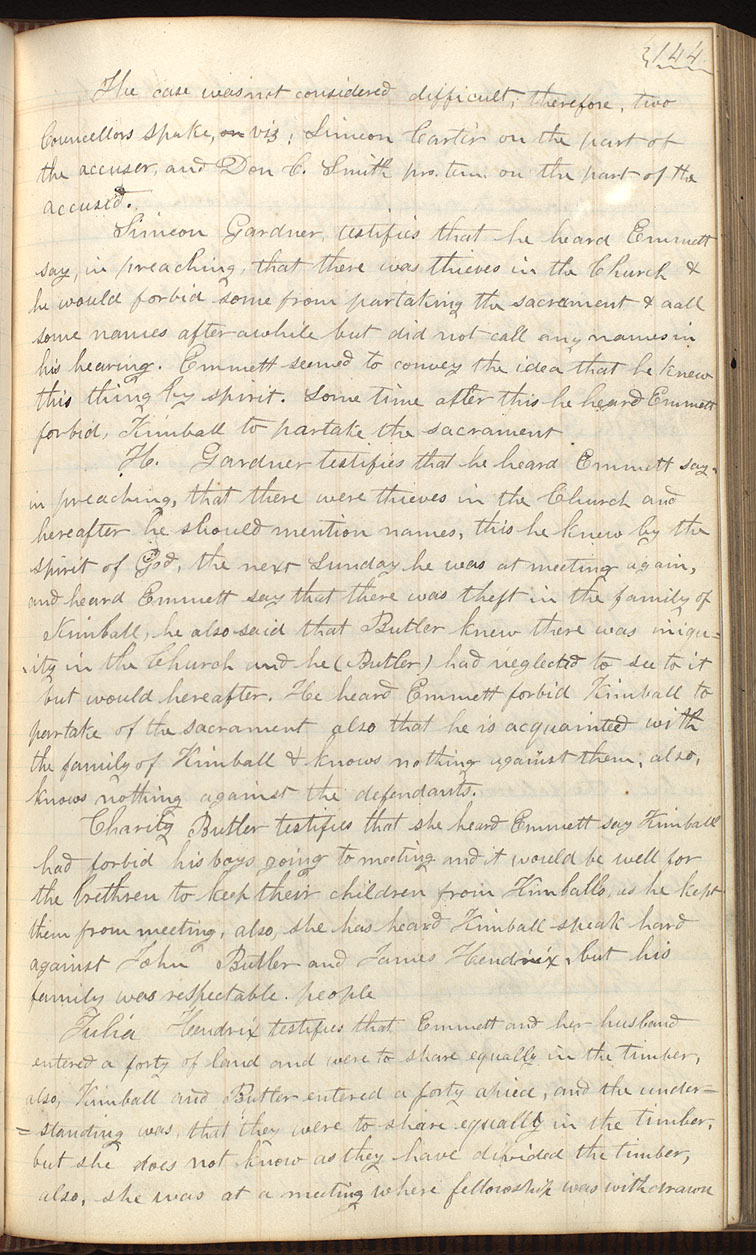 144
The case was not considered difficult; therefore, two
Councellors spake, on viz; Simeon Carter on the part of
the accuser, and Don C. Smith pro. tem. on the part of the
accused.
Simeon Gardner, testifies that he heard Emmett
say, in preaching, that there was thieves in the Church &
he would forbid some from partaking the sacrement & call
some names after awhile but did not call any names in
his hearing. Emmett seemed to convey the idea that he knew
this thing by spirit. Some time after this he heard Emmett
forbid, Kimball to partake the sacrament
H. Gardner testifies that he heard Emmett say,
in preaching, that there were thieves in the Church and
hereafter he should mention names, this he knew by the
spirit of God, the next Sunday he was at meeting again,
and heard Emmett say that there was theft in the family of
Kimball, he also said that Butler knew there was iniqu=
ity in the Church and he (Butler) had neglected to see to it
but would hereafter. He heard Emmett forbid Kimball to
partake of the sacrament also that he is acquainted with
the family of Kimball & knows nothing against them, also,
knows nothing against the defendants.
Charity Butler testifies that she heard Emmett say Kimball
had forbid his boys going to meeting and it would be well for
the brethren to keep their children from Kimballs, as he kept
them from meeting, also, she has heard Kimball speak hard
against John Butler and James Hendrix, but his
family was respectable. people
Julia Hendrix testifies that Emmett and her husband
entered a forty of land and were to share equally in the timber,
also, Kimball and Butler entered a forty apiece, and the under=
=standing was, that they were to share equally in the timber,
but she does not know as they have divided the timber,
also, she was at a meeting where fellowship was withdrawn